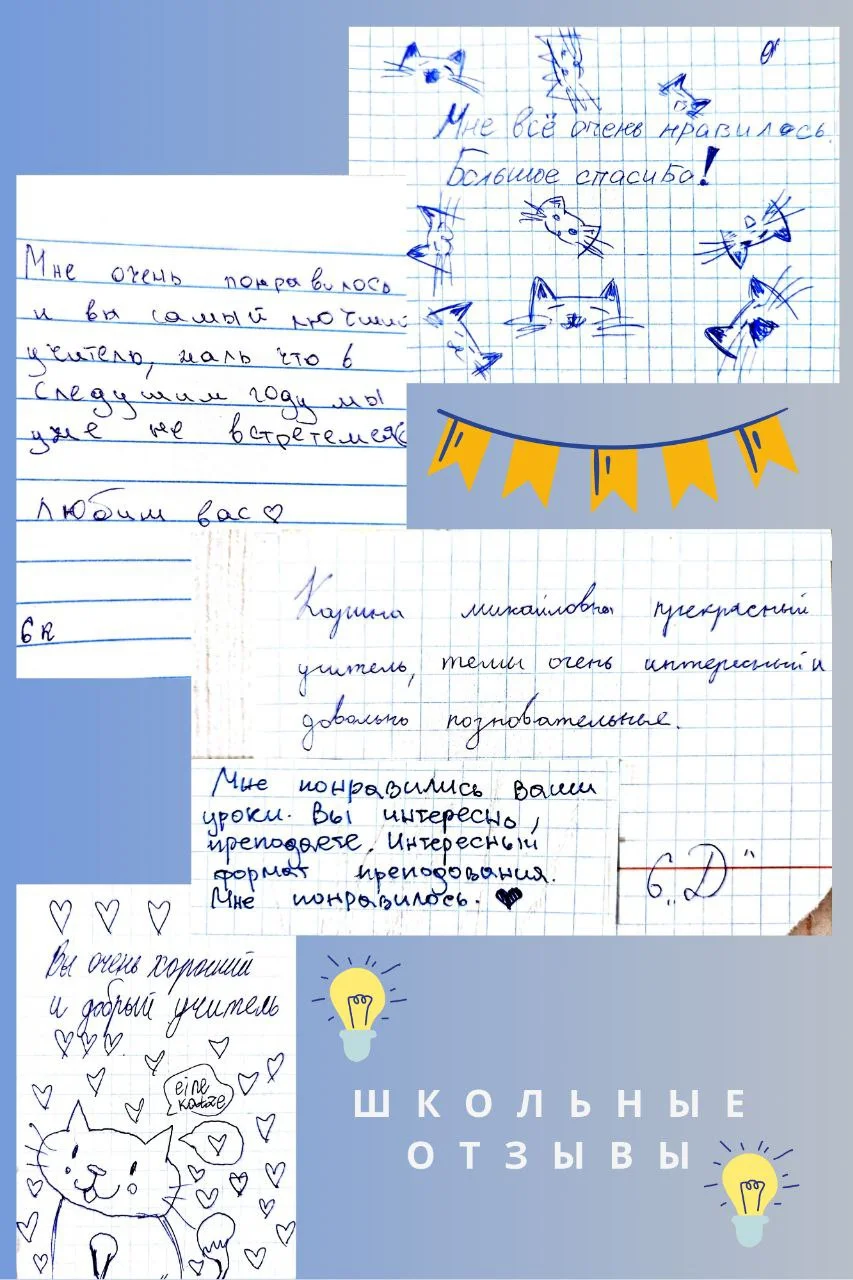 Мне всё очень нравилось.
Большое спасибо!
Мне очень понравилось
и вы самый лючший
учитель, жаль что в
следущим году мы
уже не встретемся(
Любим вас♡
6к
Карина михайловна прекрасный
учитель, темы очень интересный и
довольно позновательные.
6 „Д"
Мне понравились ваши
уроки. Вы интересно,
преподаете. Интересный
формат преподования.
Мне понравилось. ♥
Вы очень хороший
и добрый учитель
eine
katze
ШКОЛЬНЫЕ
ОТЗЫВЫ